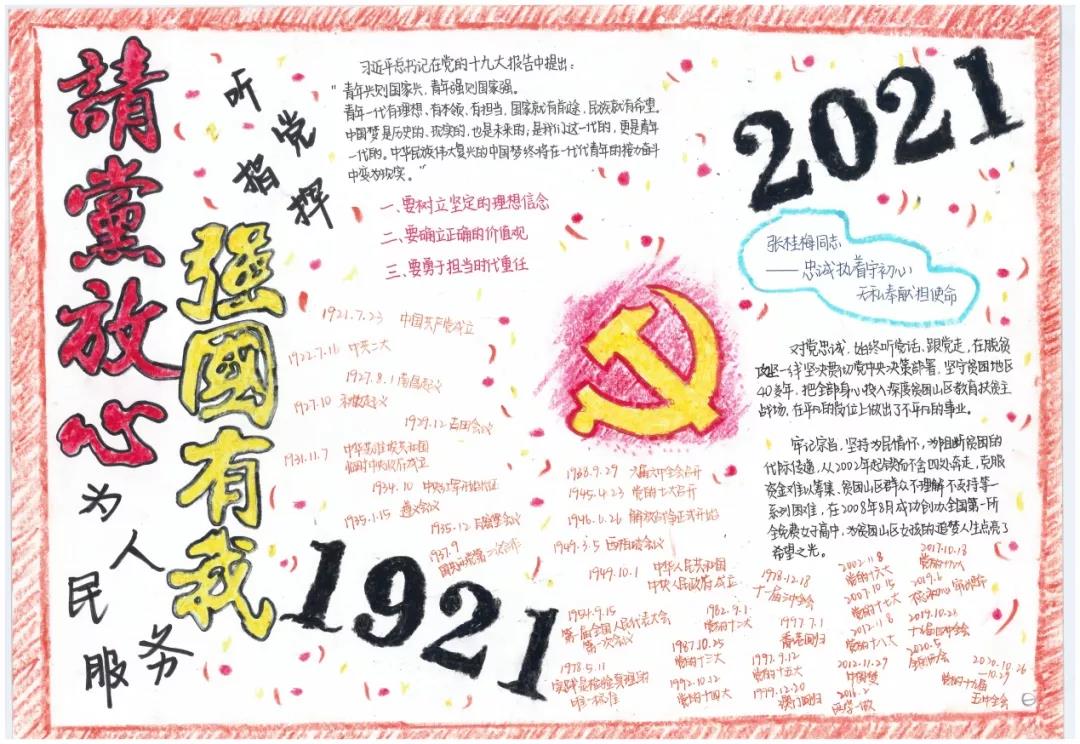 請黨放心
强國有我
听党
指挥
为人
民
服务
习近平总书记在党的十九大报告中提出：
“青年兴则国家兴，青年强则国家强。
青年一代有理想、有本领、有担当，国家就有前途，民族就有希望。
中国梦是历史的、现实的，也是未来的；是我们这一代的，更是青年
一代的。中华民族伟大复兴的中国梦终将在一代代青年的接力奋斗
中变为现实。”
一、要树立坚定的理想信念
二、要确立正确的价值观
三、要勇于担当时代重任
2021
张桂梅同志
——忠诚执着守初心
无私奉献担使命
对党忠诚，始终听党话，跟党走，在脱贫
攻坚一线坚决贯彻党中央决策部署，坚守贫困地区
40多年，把全部身心投入深度贫困山区教育扶贫主
战场，在平凡的岗位上做出了不平凡的事业。
牢记宗旨，坚持为民情怀，为阻断贫困的
代际传递，从2002年起锲而不舍四处奔走，克服
资金难以筹集、贫困山区群众不理解不支持等一
系列困难，在2008年8月成功创办全国第一所
全免费女子高中，为贫困山区女孩的追梦人生点亮了
希望之光。
1921.7.23 中国共产党成立
1922.7.16 中共二大
1927.8.1 南昌起义
1927.10
1929.12 古田会议
1931.11.7 中华苏维埃共和国
临时中央政府成立
1934.10 中央红军开始长征
1935.1.15 遵义会议
1935.12 瓦窑堡会议
1937.9
国共两党第二次合作
1938.9.29 六届六中全会召开
1945.4.23 党的七大召开
1946.6.26 解放战争正式开始
1949.3.5 西柏坡会议
1949.10.1 中华人民共和国
中央人民政府成立
1954.9.15
第一届全国人民代表大会
第一次会议
1978.5.11
实践是检验真理的
唯一标准
1978.12.18
十一届三中全会
1982.9.1
党的十二大
1987.10.25
党的十三大
1992.10.12
党的十四大
1997.7.1
香港回归
1997.9.12
党的十五大
1999.12.20
澳门回归
2002.11.8
党的十六大
2007.10.15
党的十七大
2012.11.8
党的十八大
2012.11.29
中国梦
2016.2
两学一做
2017.10.18
党的十九大
2019.6
2019.10.28
十九届四中全会
2020.5
2020.10.26
—10.29
党的十九届
五中全会
1921